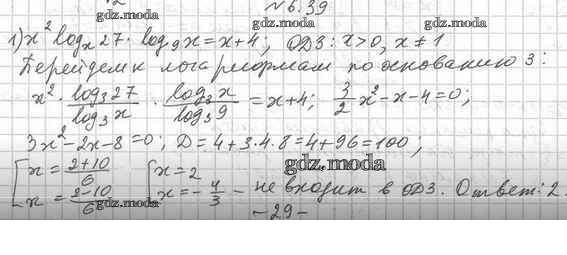 №6.39
gdz.moda gdz.moda
1) x² logₓ27 · log₉x = x+4; ОДЗ: x>0, x≠1
Перейдем к логарифмам по основанию 3:
x² · log₃27/log₃x · log₃x/log₃9 = x+4; 3/2 x² - x - 4 = 0;
3x² - 2x - 8 = 0; D = 4 + 3·4·8 = 4 + 96 = 100;
gdz.moda
[x = (2+10)/6 [x = 2
[x = (2-10)/6 [x = -4/3 - не входит в ОДЗ. Ответ: 2.
gdz.moda gdz.moda
-29-